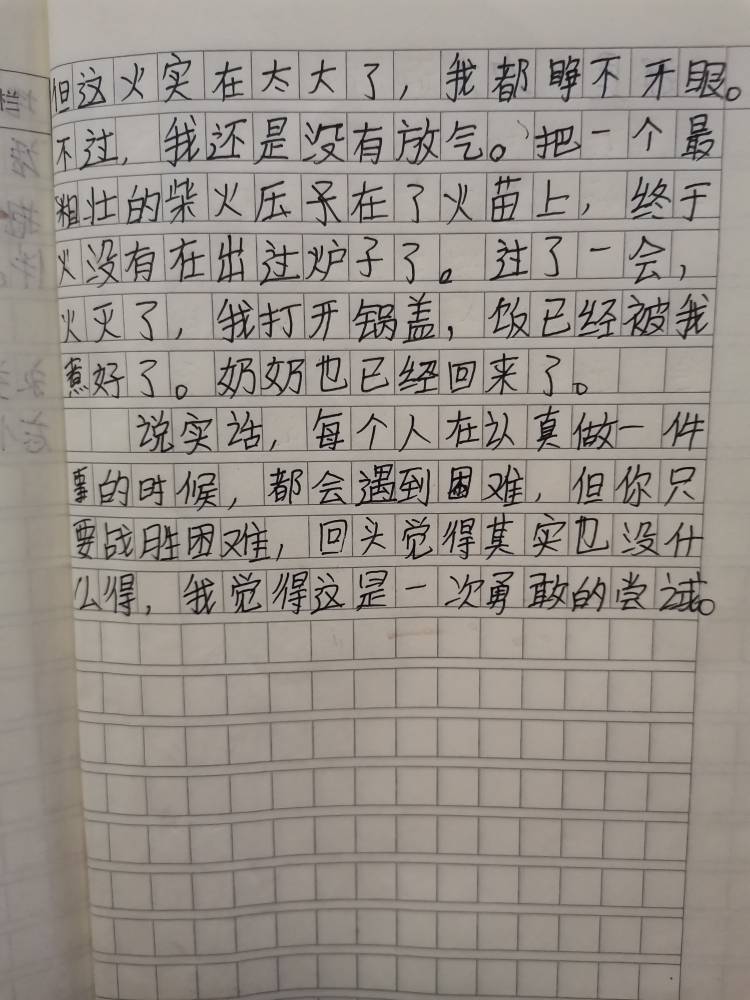 但这火实在太大了，我都睁不开眼。
不过，我还是没有放气。把一个最
粗壮的柴火压在了火苗上，终于
火没有在出过炉子了。过了一会，
火灭了，我打开锅盖，饭已经被我
煮好了。奶奶也已经回来了。
说实话，每个人在认真做一件
事的时候，都会遇到困难，但你只
要战胜困难，回头觉得其实也没什
么得，我觉得这是一次勇敢的尝试。